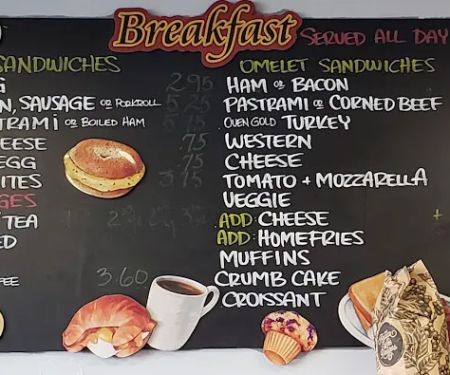 Breakfast SERVED ALL DAY
SANDWICHES
G 2.95
N, SAUSAGE OR PORKROLL 5.25
TRAMI OR BOILED HAM 5.75
EESE .75
EGG .75
ITES 3.75
GES
TEA
ED
FEE 3.60
OMELET SANDWICHES
HAM OR BACON
PASTRAMI OR CORNED BEEF
OVEN GOLD TURKEY
WESTERN
CHEESE
TOMATO + MOZZARELLA
VEGGIE
ADD: CHEESE +
ADD: HOMEFRIES
MUFFINS
CRUMB CAKE
CROISSANT